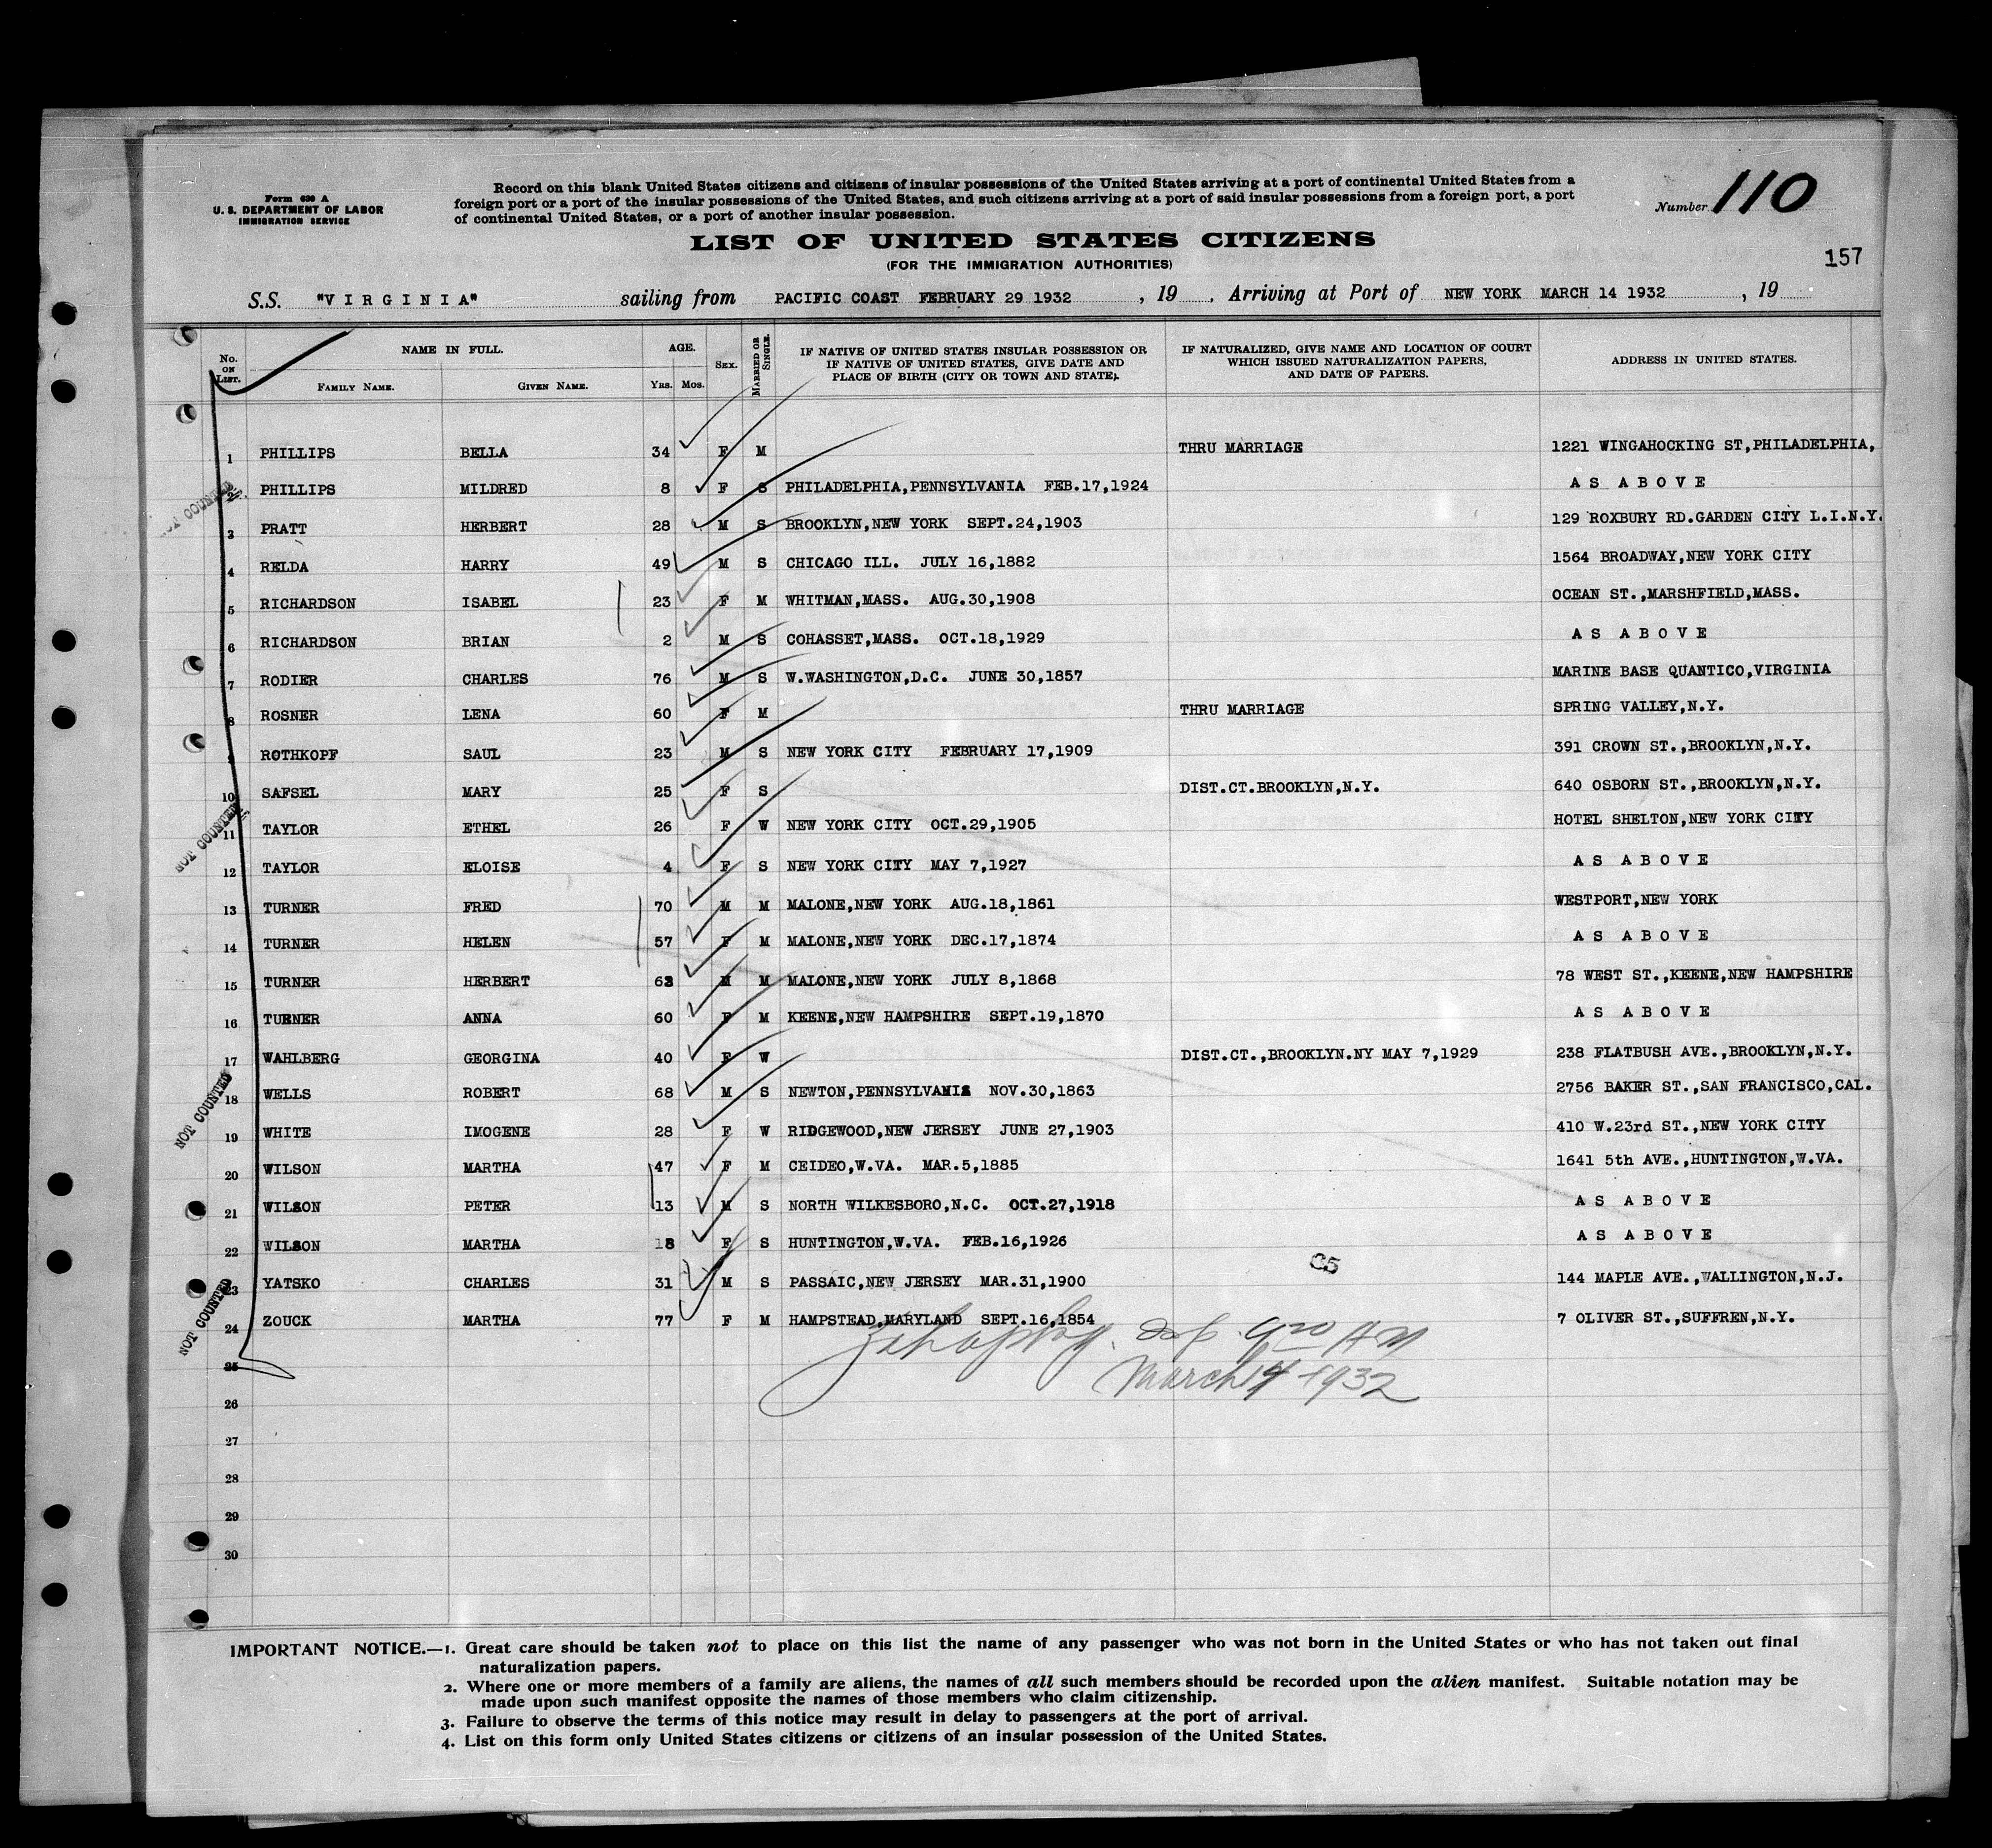 Form 630 A
U. S. DEPARTMENT OF LABOR
IMMIGRATION SERVICE
Record on this blank United States citizens and citizens of insular possessions of the United States arriving at a port of continental United States from a
foreign port or a port of the insular possessions of the United States, and such citizens arriving at a port of said insular possessions from a foreign port, a port
of continental United States, or a port of another insular possession.
Number 110
LIST OF UNITED STATES CITIZENS
(FOR THE IMMIGRATION AUTHORITIES)
157
S.S. "VIRGINIA" sailing from PACIFIC COAST FEBRUARY 29 1932 , 19 . Arriving at Port of NEW YORK MARCH 14 1932 , 19
No. ON LIST. NAME IN FULL. AGE. SEX. MARRIED OR SINGLE. IF NATIVE OF UNITED STATES INSULAR POSSESSION OR IF NATIVE OF UNITED STATES, GIVE DATE AND PLACE OF BIRTH (CITY OR TOWN AND STATE). IF NATURALIZED, GIVE NAME AND LOCATION OF COURT WHICH ISSUED NATURALIZATION PAPERS, AND DATE OF PAPERS. ADDRESS IN UNITED STATES.
FAMILY NAME. GIVEN NAME. YRS. MOS.
1 PHILLIPS BELLA 34 F M THRU MARRIAGE 1221 WINGAHOCKING ST,PHILADELPHIA,
2 PHILLIPS MILDRED 8 F S PHILADELPHIA,PENNSYLVANIA FEB.17,1924 AS ABOVE
NOT COUNTED
3 PRATT HERBERT 28 M S BROOKLYN,NEW YORK SEPT.24,1903 129 ROXBURY RD.GARDEN CITY L.I.N.Y.
4 RELDA HARRY 49 M S CHICAGO ILL. JULY 16,1882 1564 BROADWAY,NEW YORK CITY
5 RICHARDSON ISABEL 23 F M WHITMAN,MASS. AUG.30,1908 OCEAN ST.,MARSHFIELD,MASS.
6 RICHARDSON BRIAN 2 M S COHASSET,MASS. OCT.18,1929 AS ABOVE
7 RODIER CHARLES 76 M S W.WASHINGTON,D.C. JUNE 30,1857 MARINE BASE QUANTICO,VIRGINIA
8 ROSNER LENA 60 F M THRU MARRIAGE SPRING VALLEY,N.Y.
9 ROTHKOPF SAUL 23 M S NEW YORK CITY FEBRUARY 17,1909 391 CROWN ST.,BROOKLYN,N.Y.
10 SAFSEL MARY 25 F S DIST.CT.BROOKLYN,N.Y. 640 OSBORN ST.,BROOKLYN,N.Y.
11 TAYLOR ETHEL 26 F W NEW YORK CITY OCT.29,1905 HOTEL SHELTON,NEW YORK CITY
NOT COUNTED
12 TAYLOR ELOISE 4 F S NEW YORK CITY MAY 7,1927 AS ABOVE
13 TURNER FRED 70 M M MALONE,NEW YORK AUG.18,1861 WESTPORT,NEW YORK
14 TURNER HELEN 57 F M MALONE,NEW YORK DEC.17,1874 AS ABOVE
15 TURNER HERBERT 63 M M MALONE,NEW YORK JULY 8,1868 78 WEST ST.,KEENE,NEW HAMPSHIRE
16 TURNER ANNA 60 F M KEENE,NEW HAMPSHIRE SEPT.19,1870 AS ABOVE
17 WAHLBERG GEORGINA 40 F W DIST.CT.,BROOKLYN.NY MAY 7,1929 238 FLATBUSH AVE.,BROOKLYN,N.Y.
18 WELLS ROBERT 68 M S NEWTON,PENNSYLVANIA NOV.30,1863 2756 BAKER ST.,SAN FRANCISCO,CAL.
NOT COUNTED
19 WHITE IMOGENE 28 F W RIDGEWOOD,NEW JERSEY JUNE 27,1903 410 W.23rd ST.,NEW YORK CITY
20 WILSON MARTHA 47 F M CEIDEO,W.VA. MAR.5,1885 1641 5th AVE.,HUNTINGTON,W.VA.
21 WILSON PETER 13 M S NORTH WILKESBORO,N.C. OCT.27,1918 AS ABOVE
22 WILSON MARTHA F S HUNTINGTON,W.VA. FEB.16,1926 AS ABOVE
23 YATSKO CHARLES 31 M S PASSAIC,NEW JERSEY MAR.31,1900 C5 144 MAPLE AVE.,WALLINGTON,N.J.
NOT COUNTED
24 ZOUCK MARTHA 77 F M HAMPSTEAD,MARYLAND SEPT.16,1854 7 OLIVER ST.,SUFFREN,N.Y.
9 20 AM
25
March 14 1932
26
27
28
29
30
IMPORTANT NOTICE.—1. Great care should be taken not to place on this list the name of any passenger who was not born in the United States or who has not taken out final
naturalization papers.
2. Where one or more members of a family are aliens, the names of all such members should be recorded upon the alien manifest. Suitable notation may be
made upon such manifest opposite the names of those members who claim citizenship.
3. Failure to observe the terms of this notice may result in delay to passengers at the port of arrival.
4. List on this form only United States citizens or citizens of an insular possession of the United States.